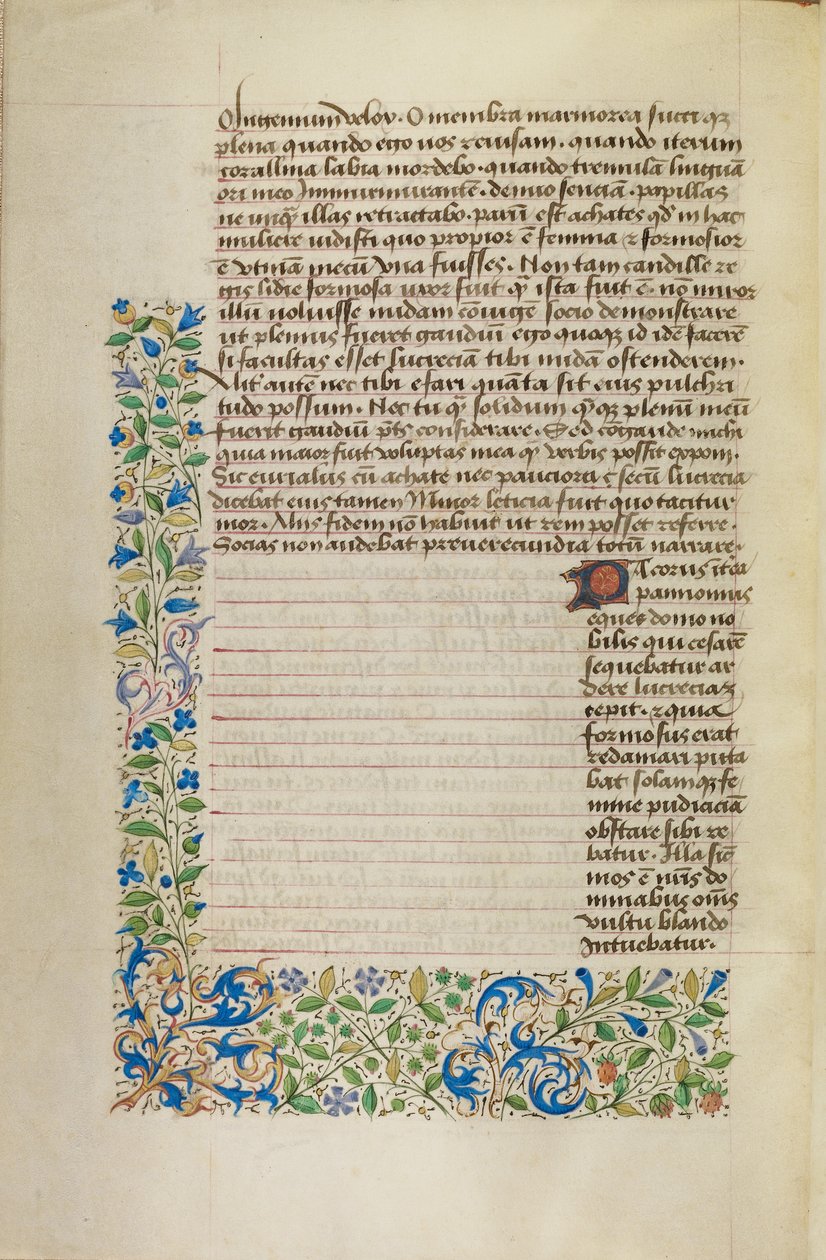 O Ingenium velox · O membra marmorea succi qꝫ
plena quando ego uos reuisam · quando iterum
corallina labia mordebo · quando tremulā linguā
ori meo Inmurmurantē · denuo senciā · papillas
ne unqꝫ illas retractabo · parū est achates qd̄ in hac
muliere uidisti quo propior ē femina ⁊ formosior
ē vtinā mecū vna fuisses · Non tam candille re
gis lidie formosa uxor fuit qꝫ ista fuit ē · nō miror
illū uoluisse nudam cōuigē socio demonstrare
ut plenius fueret gaudiū ego quoqꝫ id idē facerē
si facultas esset lucreciā tibi nudā ostenderem ·
Alit̾ autē nec tibi efari quāta sit eius pulchri
tudo possum · Nec tu qꝫ solidum qꝫqꝫ plenū meū
fuerit gaudiū pt̄s considerare · Sed cōgaude michi
quia maior fuit voluptas mea qꝫ verbis possit exponi ·
Sic eurialus cū achate nec pauciora c̄ secū lucrecia
dicebat eius tamen Minor leticia fuit quo tacitur
nior · Aliis fidem nō habuit ut rem posset referre ·
Socias non audebat pre uerecundia totū narrare ·
Pacorus it̄ea
pannonius
eques domo no
bilis qui cesarē
sequebatur ar
dere lucreciaꝫ
cepit · ⁊ quia
formosus erat
redamari puta
bat solamqꝫ fe
mine pudiciciā
obstare sibi re
batur · Illa sic̄
mos ē nr̄is do
minabus om̄s
vultu blando
Intuebatur ·